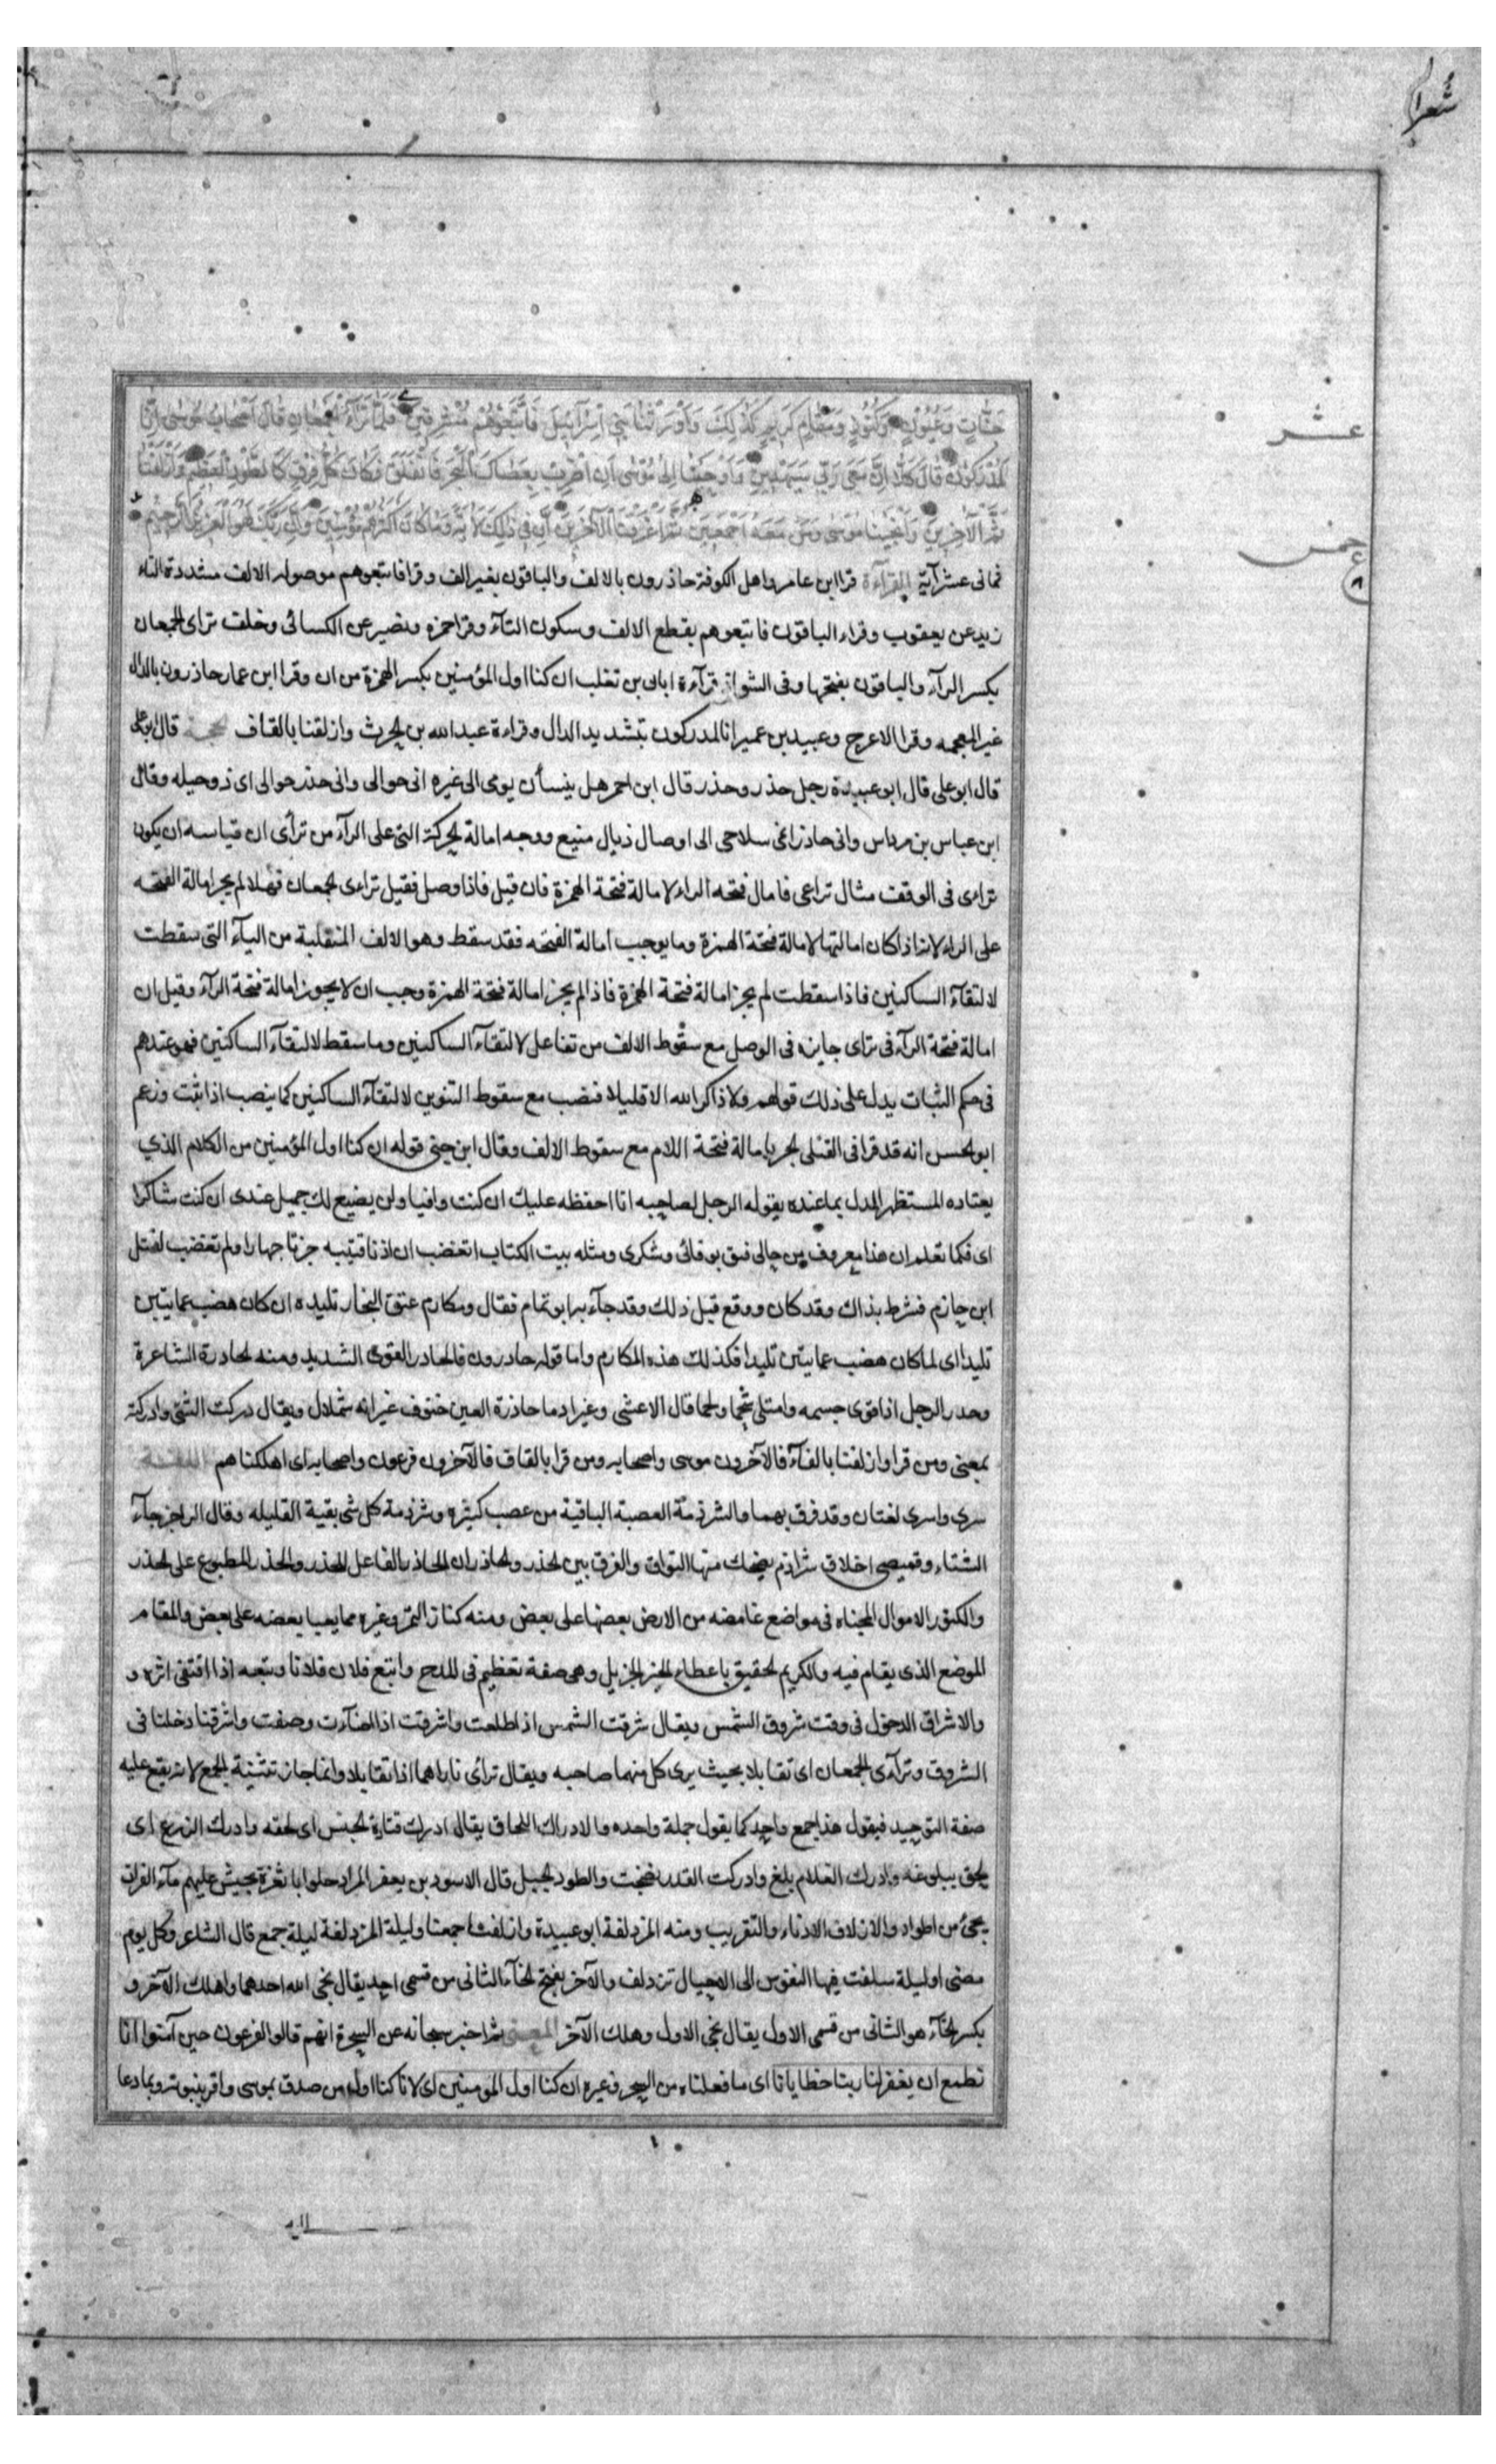 شعرا
جَنَّاتٍ وَعُيُونٍ وَكُنُوزٍ وَمَقَامٍ كَرِيمٍ كَذٰلِكَ وَأَوْرَثْنَاهَا بَنِي إِسْرَآئِيلَ فَأَتْبَعُوهُمْ مُشْرِقِينَ فَلَمَّا تَرَآءَ الْجَمْعَانِ قَالَ أَصْحَابُ مُوسَى إِنَّا
لَمُدْرَكُونَ قَالَ كَلَّا إِنَّ مَعِيَ رَبِّي سَيَهْدِينِ وَأَوْحَيْنَا إِلَى مُوسَى أَنِ اضْرِبْ بِعَصَاكَ الْبَحْرَ فَانْفَلَقَ فَكَانَ كُلُّ فِرْقٍ كَالطَّوْدِ الْعَظِيمِ وَأَزْلَفْنَا
ثَمَّ الْآخَرِينَ وَأَنْجَيْنَا مُوسَى وَمَنْ مَعَهُ أَجْمَعِينَ ثُمَّ أَغْرَقْنَا الْآخَرِينَ إِنَّ فِي ذٰلِكَ لَآيَةً وَمَا كَانَ أَكْثَرُهُمْ مُؤْمِنِينَ وَإِنَّ رَبَّكَ لَهُوَ الْعَزِيزُ الرَّحِيمُ
عشر
خمس
ثمانى عشر آية القرآءة قرا ابن عامر واهل الكوفة حاذرون بالالف والباقون بغير الف وقرا فاتبعوهم موصولة الالف مشددة التاء
زيد عن يعقوب وقراء الباقون فاتبعوهم بقطع الالف وسكون التآء وقرا حمزه ونصير عن الكسائى وخلف تراى الجمعان
بكسر الرآء والباقون بفتحها وفى الشواذ قرآءة ابان بن تغلب ان كنا اول المؤمنين بكسر الهمزة من ان وقرا ابن عمار حاذرون بالدال
غير المعجمه وقرا الاعرج وعبيد بن عمير انا لمدركون بتشديد الدال وقراءة عبد الله بن الحرث وازلقنا بالقاف الحجة قال ابو على
قال ابو على قال ابو عبيدة رجل حذر وحذر قال ابن احمر هل ينسأن يومى الى غيره انى حوالى وانى حذر حوالى اى ذو حيله وقال
ابن عباس بن مرداس وانى حاذر انمى سلاحى الى اوصال ذيال منيع ووجه امالة الحركة التى على الرآء من ترآى ان قياسه ان يكون
تراءى فى الوقف مثال تراعى فامال فتحه الراء لامالة فتحة الهمزة فان قيل فاذا وصل فقيل تراءى الجمعان فهلا لم يجز امالة الفتحه
على الراء لانه اذا كان امالتها لامالة فتحة الهمزة وما يوجب امالة الفتحه فقد سقط وهو الالف المنقلبة من اليآء التى سقطت
لالتقآء الساكنين فاذا سقطت لم يجز امالة فتحة الهمزة فاذا لم يجز امالة فتحة الهمزة وجب ان لا يجوز امالة فتحة الرآء وقيل ان
امالة فتحة الرآء فى تراى جايزه فى الوصل مع سقوط الالف من تفاعل لالتقآء الساكنين وما سقط لالتقآء الساكنين فهو عندهم
فى حكم الثبات يدل على ذلك قولهم ولا ذاكر الله الا قليلا فنصب مع سقوط التنوين لالتقآء الساكنين كما ينصب اذا ثبت وزعم
ابو الحسن انه قد قرا فى القتلى الحر بامالة فتحة اللام مع سقوط الالف وقال ابن جنى قوله ان كنا اول المؤمنين من الكلام الذي
يعتاده المستظهر المدل بما عنده يقوله الرجل لصاحبه انا احفظه عليك ان كنت وافيا ولن يضيع لك جميل عندى ان كنت شاكرا
اى فكما تعلم ان هذا معروف من حالى فثق بوفائى وشكرى ومثله بيت الكتاب اتغضب ان اذنا قتيبه جزتا جهارا ولم تغضب لقتل
ابن حازم فشرط بذاك وقد كان ووقع قبل ذلك وقد جآء به ابو تمام فقال ومكارم عتق النجار تليده ان كان هضب عمايتين
تليدا اى لما كان هضب عمايتين تليدا فكذلك هذه المكارم واما قوله حادرون فالحادر القوى الشديد ومنه الحادرة الشاعرة
وحدر الرجل اذا قوى جسمه وامتلى شحما ولحما قال الاعشى وغير ادما حاذرة العين خنوف غيرانه شملال ويقال دركت الشئ وادركته
بمعنى ومن قرا وازلفنا بالفآء فالآخرون موسى واصحابه ومن قرا بالقاف فالآخرون فرعون واصحابه اى اهلكناهم اللغة
سرى واسرى لغتان وقد فرق بهما والشرذمة العصبة الباقية من عصب كثيرة وشرذمة كل شى بقية القليله وقال الراجز جآء
الشتاء وقميصى اخلاق شراذم يضحك منها التواق والفرق بين الحذر والحاذر ان الحاذر الفاعل للحذر والحذر المطبوع على الحذر
والكنوز الاموال المخبناه فى مواضع غامضه من الارض بعضها على بعض ومنه كناز التمر وغيره مما يعبا بعضه على بعض والمقام
الموضع الذى يقام فيه والكريم الحقيق باعطاء الخير الجزيل وهى صفة تعظيم فى المدح واتبع فلان فلانا وتبعه اذا اقتفى اثره و
والاشراق الدخول فى وقت شروق الشمس ويقال شرقت الشمس اذا طلعت واشرقت اذا اضآءت وصفت واشرقنا دخلنا فى
الشروق وترآءى الجمعان اى تقابلا بحيث يرى كل منهما صاحبه ويقال ترائى ناراهما اذا تقابلا وانما جاز تثنية الجمع لانه يقع عليه
صفة التوحيد فيقول هذا جمع واحد كما يقول جملة واحده والادراك اللحاق يقال ادرك قتادة الحسن اى لحقه وادرك الزرع اى
لحق ببلوغه وادرك الغلام بلغ وادركت القدر نضجت والطود الجبل قال الاسود بن يعفر المراد حلوا بانقرة يجيش عليهم مآء الفرات
يجئ من اطواد والازلاف الادناء والتقريب ومنه المزدلفة ابو عبيدة وازلفنا جمعنا وليلة المزدلفة ليلة جمع قال الشاعر وكل يوم
مضى او ليلة سلفت فيها النفوس الى الاجال تزدلف والآخر بفتح الخآء الثانى من قسمى احد يقال نجى الله احدهما واهلك الآخر و
بكسر الخآء هو الثانى من قسمى الاول يقال نجى الاول وهلك الآخر المعنى ثم اخبر سبحانه عن السحرة انهم قالوا لفرعون حين آمنوا انا
نطمع ان يغفر لنا ربنا خطايانا اى ما فعلناه من السحر وغيره ان كنا اول المومنين اى لانا كنا اول من صدق بموسى واقر بنبوته وبما دعا
اليه